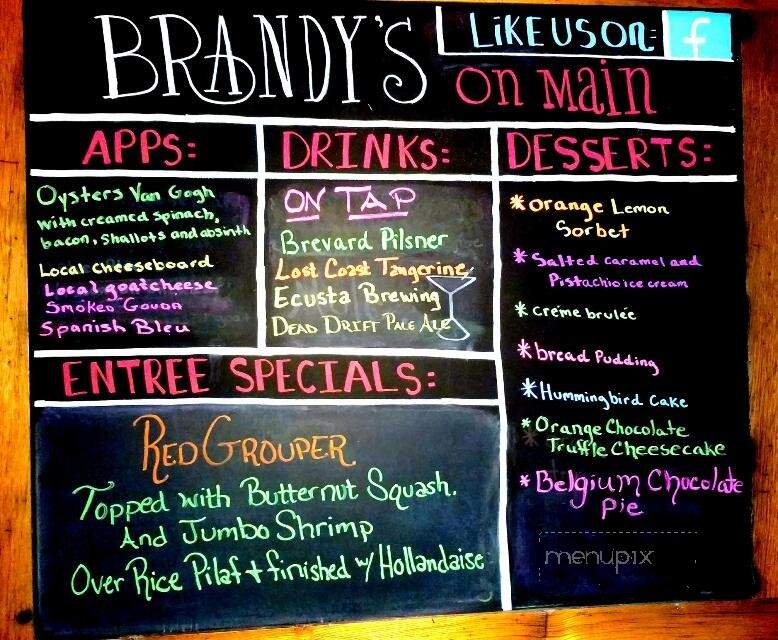 BRANDY'S on Main
LiKE US ON: f
APPS:
Oysters Van Gogh
with creamed spinach,
bacon, shallots and absinth
Local cheeseboard
Local goatcheese
Smoked Gouda
Spanish Bleu
DRINKS:
ON TAP
Brevard Pilsner
Lost Coast Tangerine
Ecusta Brewing
Dead Drift Pale Ale
DESSERTS:
*orange Lemon
Sorbet
*Salted caramel and
Pistachio ice cream
*créme brulée
*bread Pudding
*Hummingbird Cake
*Orange Chocolate
Truffle Cheesecake
*Belgium Chocolate
Pie
ENTREE SPECIALS:
Red Grouper
Topped with Butternut Squash.
And Jumbo Shrimp
Over Rice Pilaf + finished w/ Hollandaise
menupix